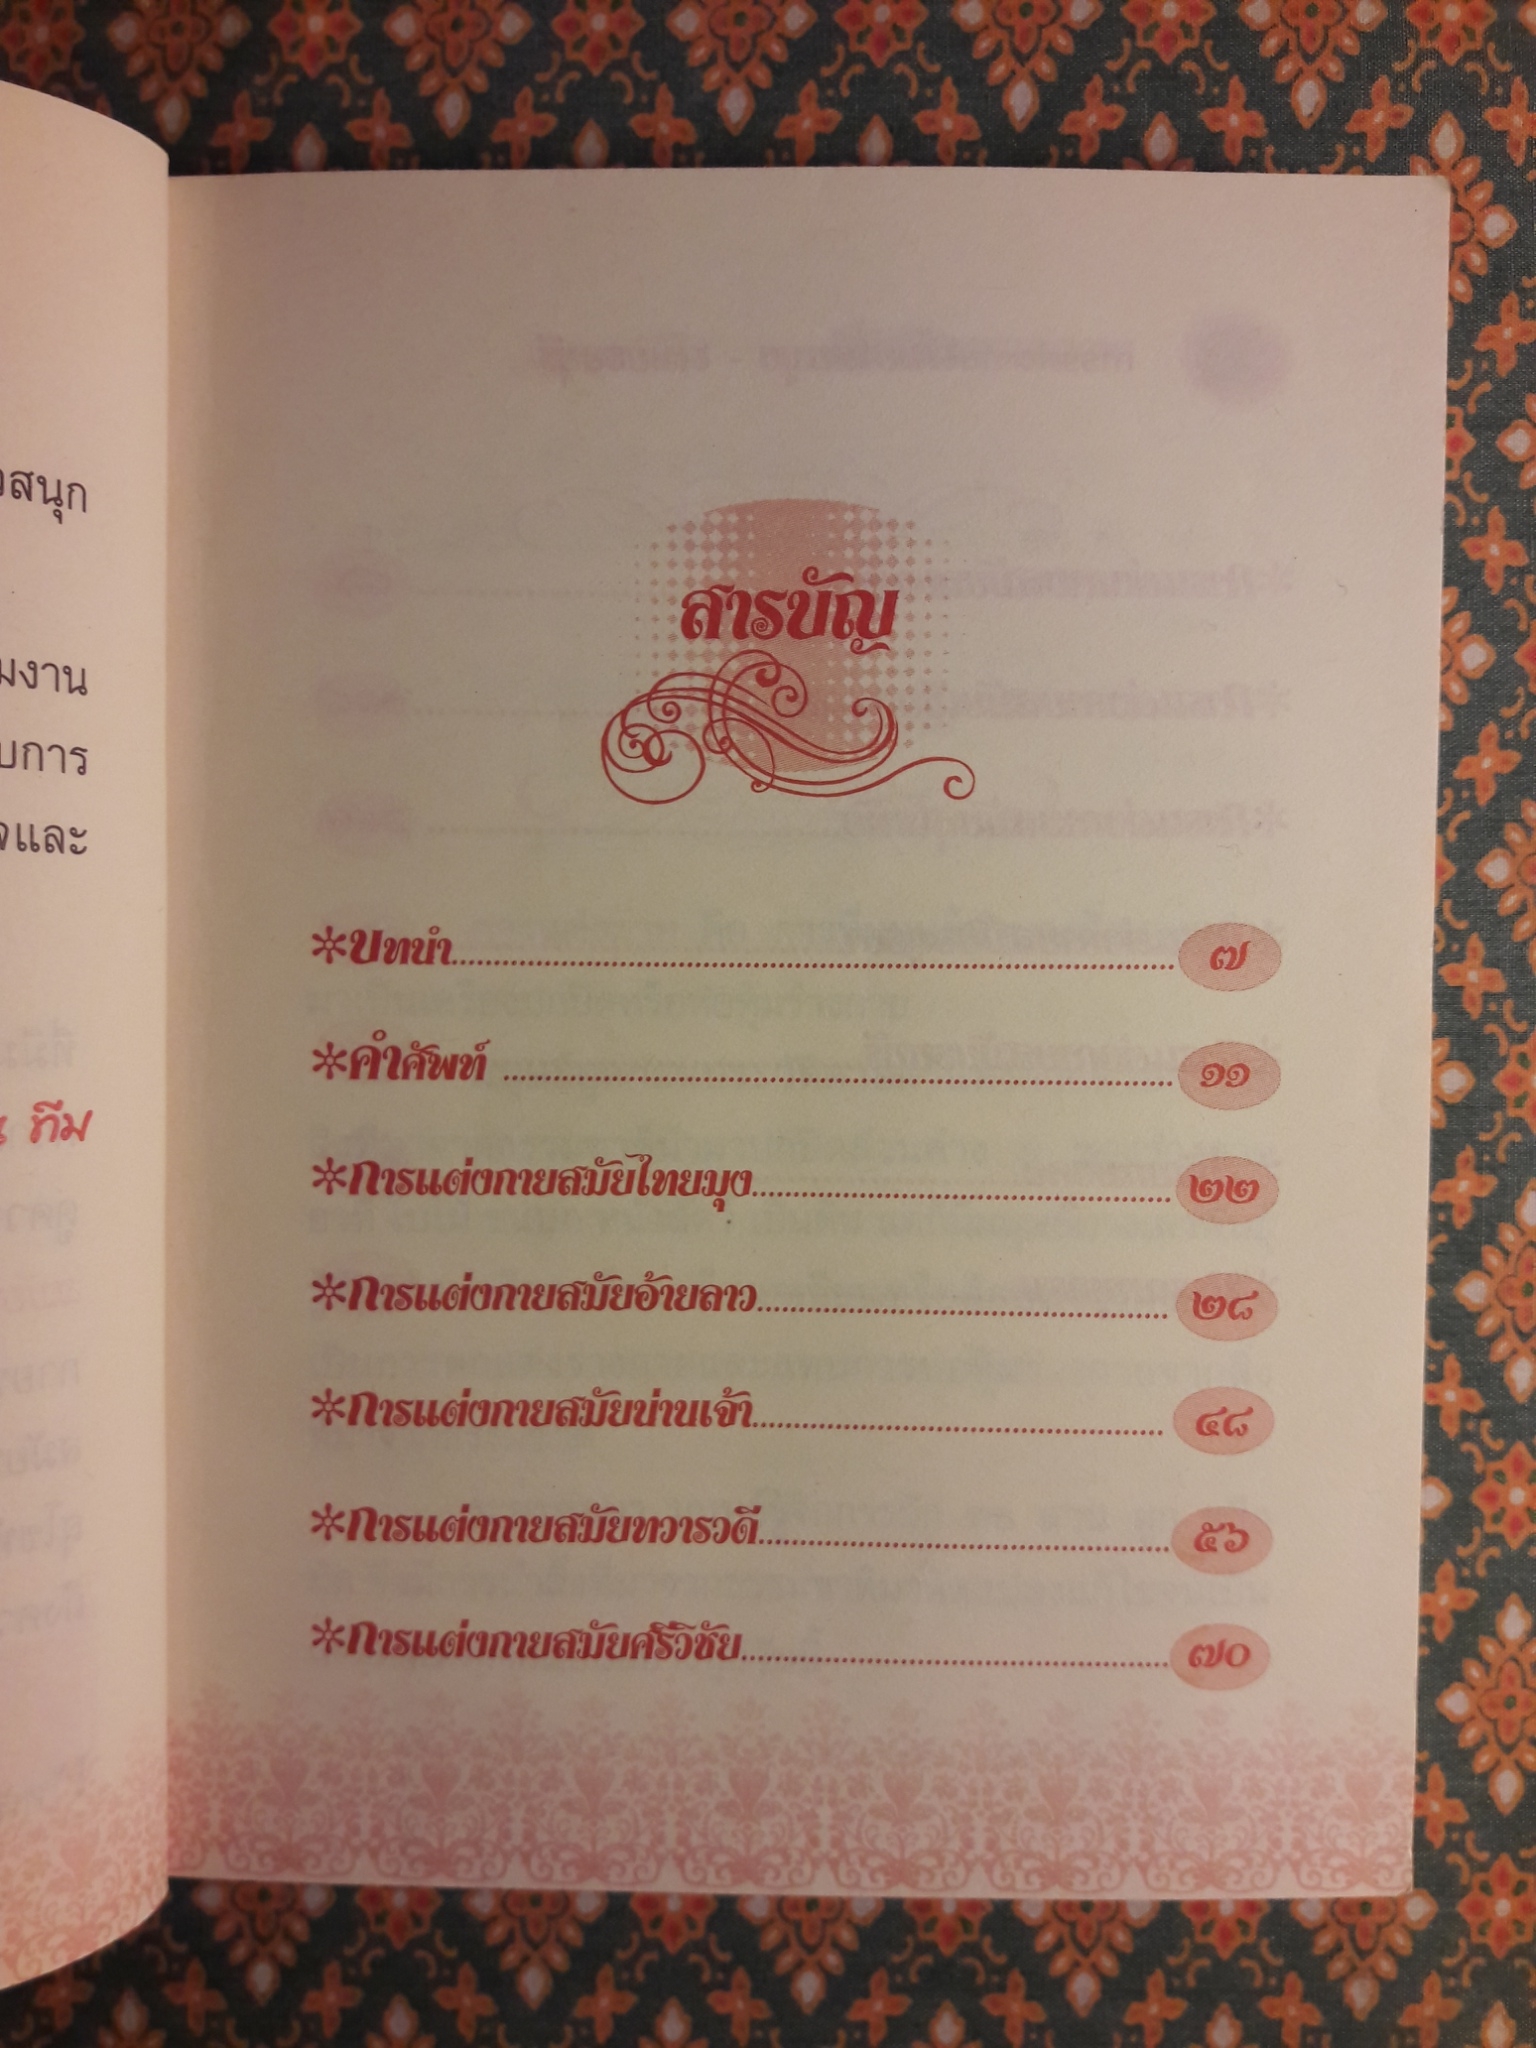 สนุก
มงาน
บการ
และ
ทีม
สารบัญ
✲บทนำ........................................................................๗
✲คำศัพท์ ....................................................................๑๑
✲การแต่งกายสมัยไทยมุง..........................................๒๒
✲การแต่งกายสมัยอ้ายลาว.........................................๒๘
✲การแต่งกายสมัยน่านเจ้า.........................................๔๘
✲การแต่งกายสมัยทวารวดี.........................................๕๖
✲การแต่งกายสมัยศรีวิชัย...........................................๗๐